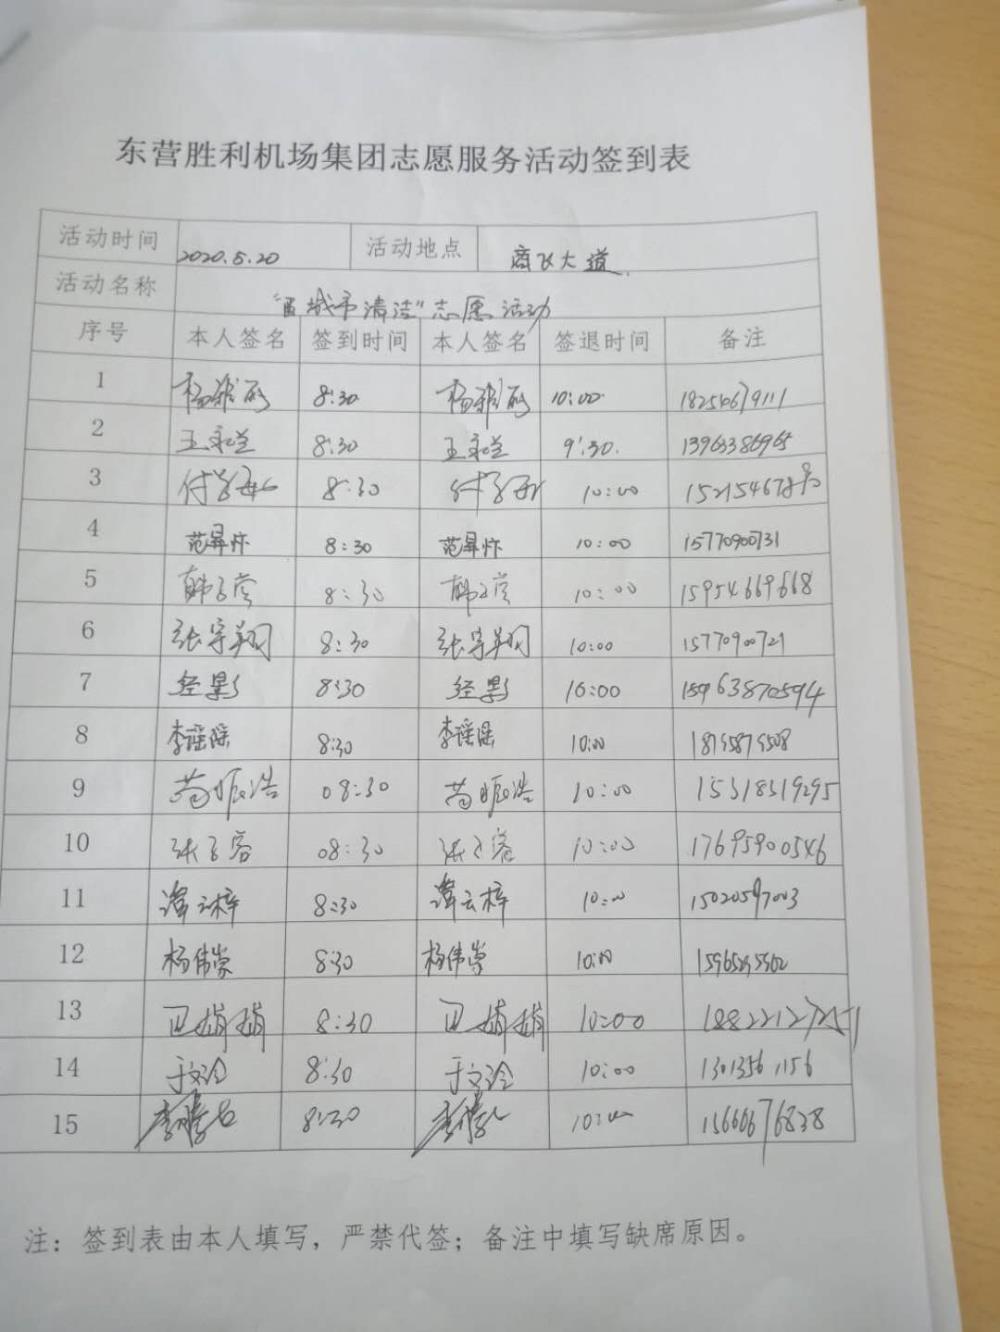 东营胜利机场集团志愿服务活动签到表
活动时间 2020.5.20 活动地点 商飞大道
活动名称 城市清洁"志愿活动
序号 本人签名 签到时间 本人签名 签退时间 备注
1 8:30 10:00 18254679111
2 8:30 9:30 13963386965
3 8:30 10:00
4 范昇怀 8:30 范昇怀 10:00 15770900731
5 8:30 10:00 15954669668
6 张宇翔 8:30 张宇翔 10:00 15770900721
7 经影 8:30 经影 10:00 15963870594
8 李谣谣 8:30 李谣谣 10:00
9 苟顺浩 08:30 苟顺浩 10:00 15318319295
10 张子容 08:30 张子容 10:00 17695900546
11 谭云梓 8:30 谭云梓 10:00 15020597003
12 杨伟崇 8:30 杨伟崇 10:00
13 巴娟娟 8:30 巴娟娟 10:00
14 于文泠 8:30 于文泠 10:00 13013561156
15 8:30 10:00 15606676838
注：签到表由本人填写，严禁代签；备注中填写缺席原因。